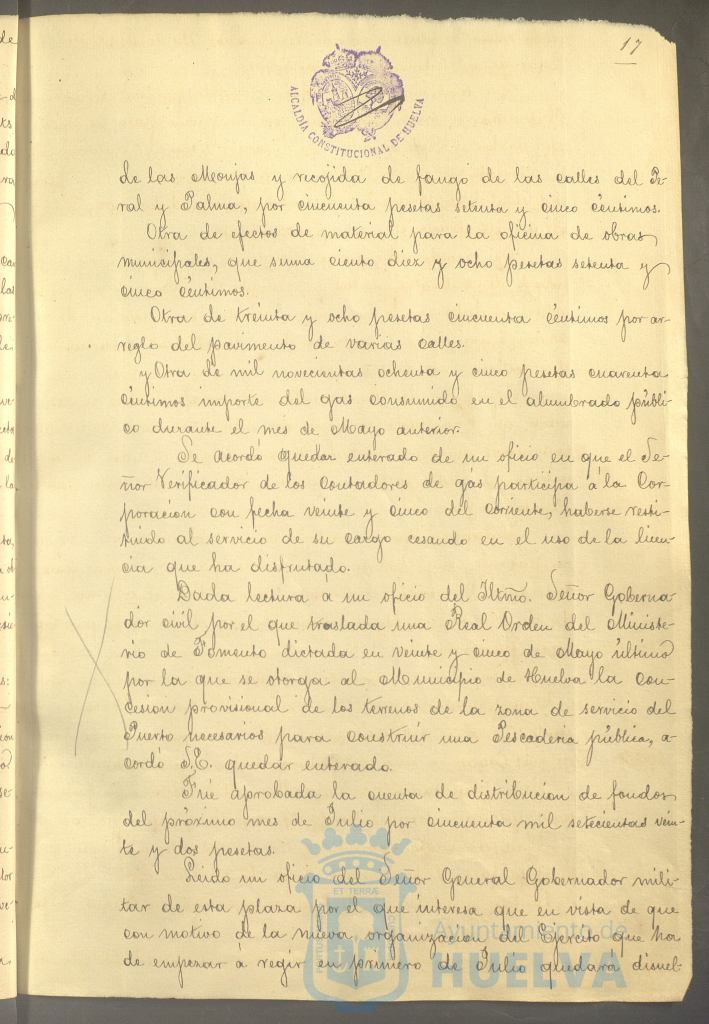 17
ALCALDÍA CONSTITUCIONAL DE HUELVA
de las Monjas y recojida de fango de las calles del Pe-
ral y Palma, por cincuenta pesetas setenta y cinco céntimos.
Otra de efectos de material para la oficina de obras
municipales, que suma ciento diez y ocho pesetas setenta y
cinco céntimos.
Otra de treinta y ocho pesetas cincuenta céntimos por ar-
reglo del pavimento de varias calles.
y Otra de mil novecientas ochenta y cinco pesetas cuarenta
céntimos importe del gas consumido en el alumbrado públi-
co durante el mes de Mayo anterior.
Se acordó quedar enterado de un oficio en que el Se-
ñor Verificador de los contadores de gas participa á la Cor-
poracion con fecha veinte y cinco del corriente, haberse resti-
tuido al servicio de su cargo cesando en el uso de la licen-
cia que ha disfrutado.
Dada lectura á un oficio del Iltmo. Señor Goberna-
dor civil por el que traslada una Real Orden del Ministe-
rio de Fomento dictada en veinte y cinco de Mayo último
por la que se otorga al Municipio de Huelva la con-
cesion provisional de los terrenos de la zona de servicio del
Puerto necesarios para construir una Pescaderia pública, a-
cordó S.E. quedar enterado.
Fué aprobada la cuenta de distribucion de fondos
del próximo mes de Julio por cincuenta mil setecientas vein-
te y dos pesetas.
Leido un oficio del Señor General Gobernador mili-
tar de esta plaza por el que interesa que en vista de que
con motivo de la nueva organizacion del Ejercito que ha
de empezar á regir en primero de Julio quedará disuel-
ET TERRÆ
Ayuntamiento de
HUELVA